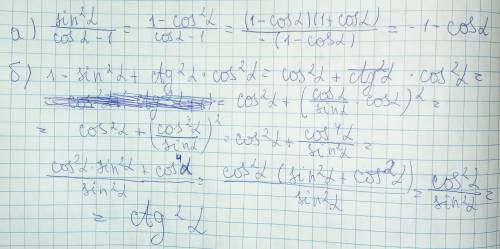 а) sin²α / cosα-1 = 1-cos²α / cosα-1 = (1-cosα)(1+cosα) / -(1-cosα) = -1-cosα
б) 1-sin²α + ctg²α · cos²α = cos²α + ctg²α · cos²α =
= cos²α + (cosα / sinα · cosα)² =
= cos²α + (cos²α / sinα)² = cos²α + cos⁴α / sin²α =
cos²α·sin²α + cos⁴α / sin²α = cos²α (sin²α + cos²α) / sin²α = cos²α / sin²α =
= ctg²α